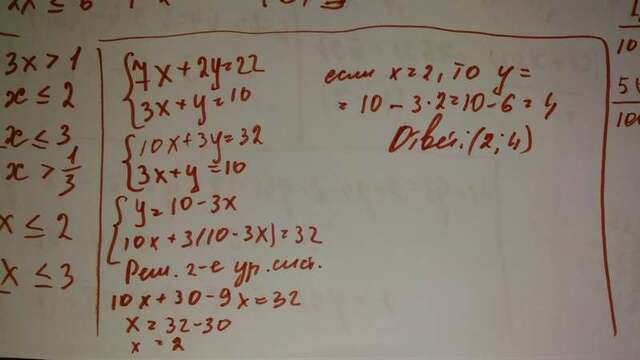 3x > 1
x ≤ 2
x ≤ 3
x > 1/3
x ≤ 2
x ≤ 3
7x + 2y = 22
3x + y = 10
10x + 3y = 32
3x + y = 10
y = 10 - 3x
10x + 3(10 - 3x) = 32
Реш. 2-е ур. сист.
10x + 30 - 9x = 32
x = 32 - 30
x = 2
если x = 2, то y =
= 10 - 3·2 = 10 - 6 = 4
Ответ: (2; 4)